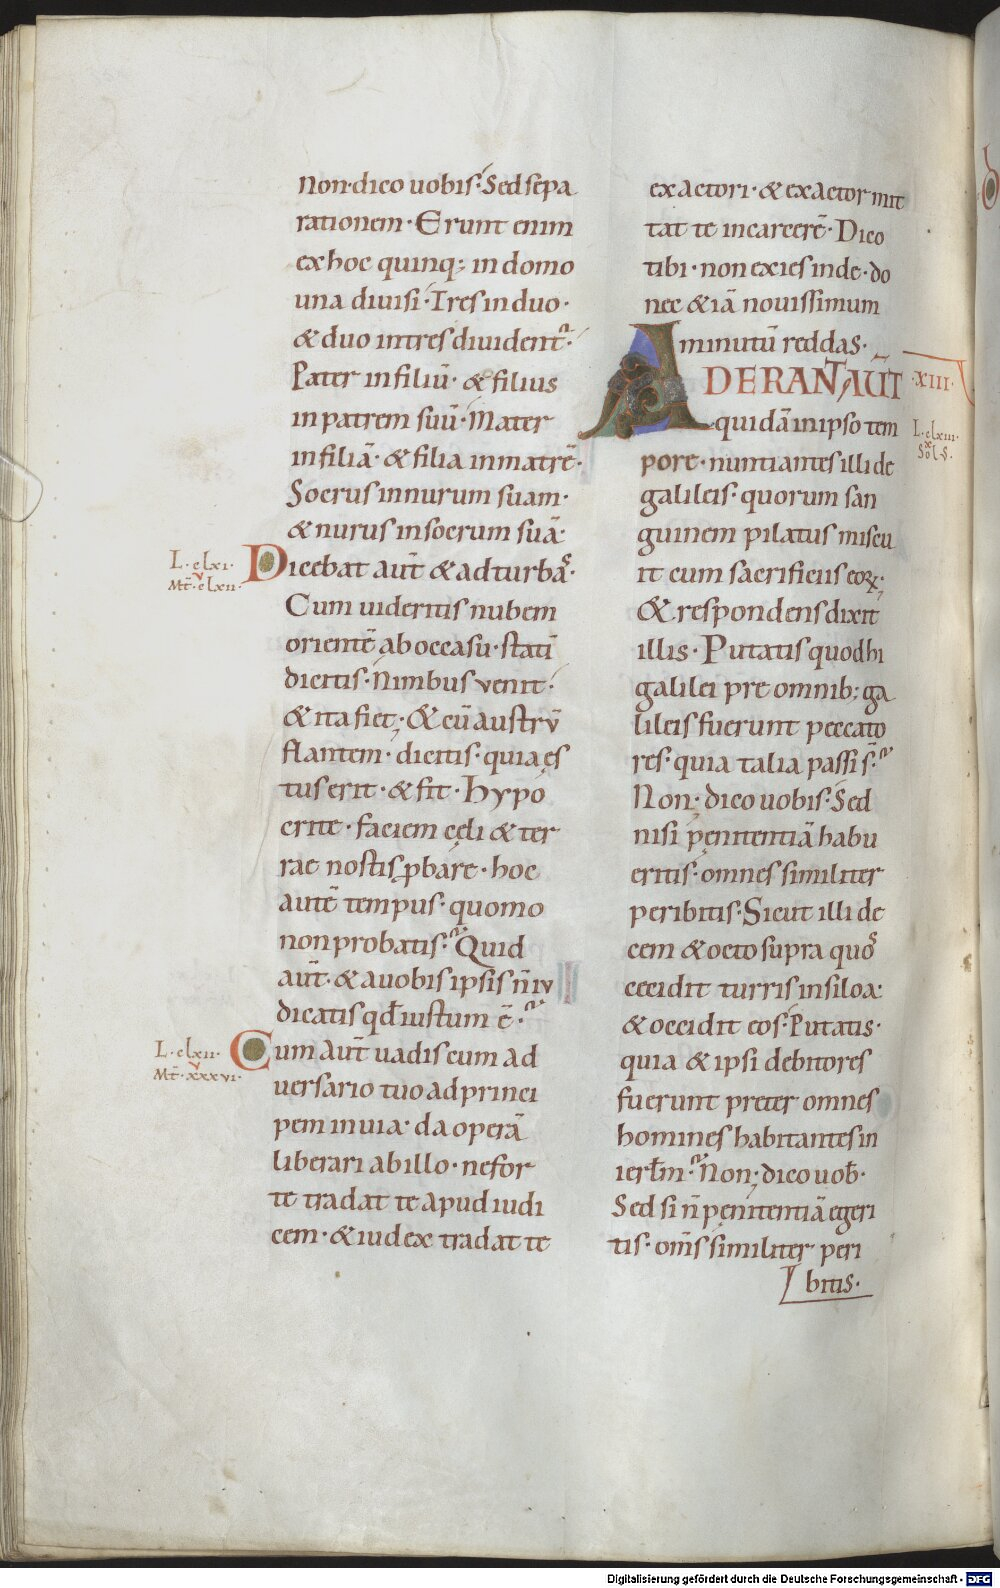 Non·dico uobis·Sed sepa
rationem·Erunt enim
ex hoc quinq; in domo
una diuisi·Tres in duo·
& duo in tres diuident᷑·
Pater in filiū·& filius
in patrem suū·Mater
in filiā·& filia in matrē·
Socrus in nurum suam·
& nurus in socrum suā·
L·clxi·
Mt̄·clxii·
Dicebat aut̄ & ad turbas·
Cum uideritis nubem
orientē ab occasu·statī
dicitis·Nimbus venit·
& ita fiet; & cū austrv̄
flantem·dicitis·quia es
tus erit·& fit·Hypo
crite·faciem cęli & ter
rae nostis ꝓbare·hoc
autē tempus·quomo
non probatis·Quid
aut̄·& a uobis ipsis n̄ iv
dicatis qđ iustum ē·
L·clxii·
Mt̄·xxxvi·
Cum aut̄ uadis cum ad
uersario tuo ad princi
pem in uia·da operā
liberari ab illo·ne for
te tradat te apud iudi
cem·& iudex tradat te
exactori·& exactor mit
tat te in carcerē·Dico
tibi·non exies inde·do
nec & iā nouissimum
minutū reddas·
ADERANT AUT̄
·XIII·
quidā in ipso tem
L·clxiii·
Sol·S·
pore·nuntiantes illi de
galileis·quorum san
guinem pilatus miscu
it cum sacrificiis eoꝝ·
& respondens dixit
illis·Putatis quod hi
galilei pre omnib; ga
lileis fuerunt peccato
res·quia talia passi s̄·
Non; dico uobis·Sed
nisi pęnitentiā habu
eritis·omnes similiter
peribitis·Sicut illi de
cem & octo supra quos
cecidit turris in siloa·
& occidit eos·Putatis·
quia & ipsi debitores
fuerunt preter omnes
homines habitantes in
ierl̄m·Non; dico uob̄·
Sed si n̄ pęnitentiā egeri
tis·om̄s similiter peri
bitis·
Digitalisierung gefördert durch die Deutsche Forschungsgemeinschaft - DFG